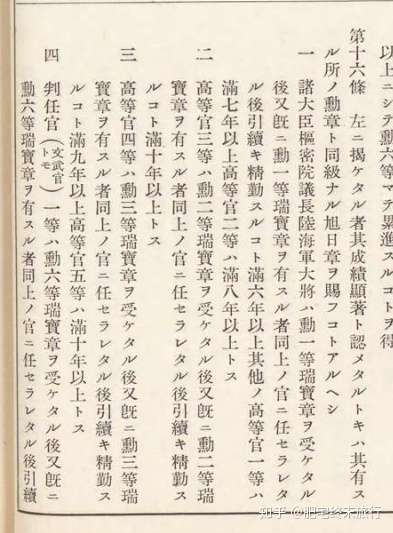 以上ニシテ勳六等マテ累進スルコトヲ得
第十六條　左ニ揭ケタル者其成績顯著ト認メタルトキハ其有ス
ル所ノ勳章ト同級ナル旭日章ヲ賜フコトアルヘシ
一　諸大臣樞密院議長陸海軍大將ハ勳一等瑞寶章ヲ受ケタル
後又旣ニ勳一等瑞寶章ヲ有スル者同上ノ官ニ任セラレタ
ル後引續キ精勤スルコト滿六年以上其他ノ高等官一等ハ
滿七年以上高等官二等ハ滿八年以上トス
二　高等官三等ハ勳二等瑞寶章ヲ受ケタル後又旣ニ勳二等瑞
寶章ヲ有スル者同上ノ官ニ任セラレタル後引續キ精勤ス
ルコト滿十年以上トス
三　高等官四等ハ勳三等瑞寶章ヲ受ケタル後又旣ニ勳三等瑞
寶章ヲ有スル者同上ノ官ニ任セラレタル後引續キ精勤ス
ルコト滿九年以上高等官五等ハ滿十年以上トス
四　判任官（文武官トモ）一等ハ勳六等瑞寶章ヲ受ケタル後又旣ニ
勳六等瑞寶章ヲ有スル者同上ノ官ニ任セラレタル後引續
知乎 @肥宅终末旅行